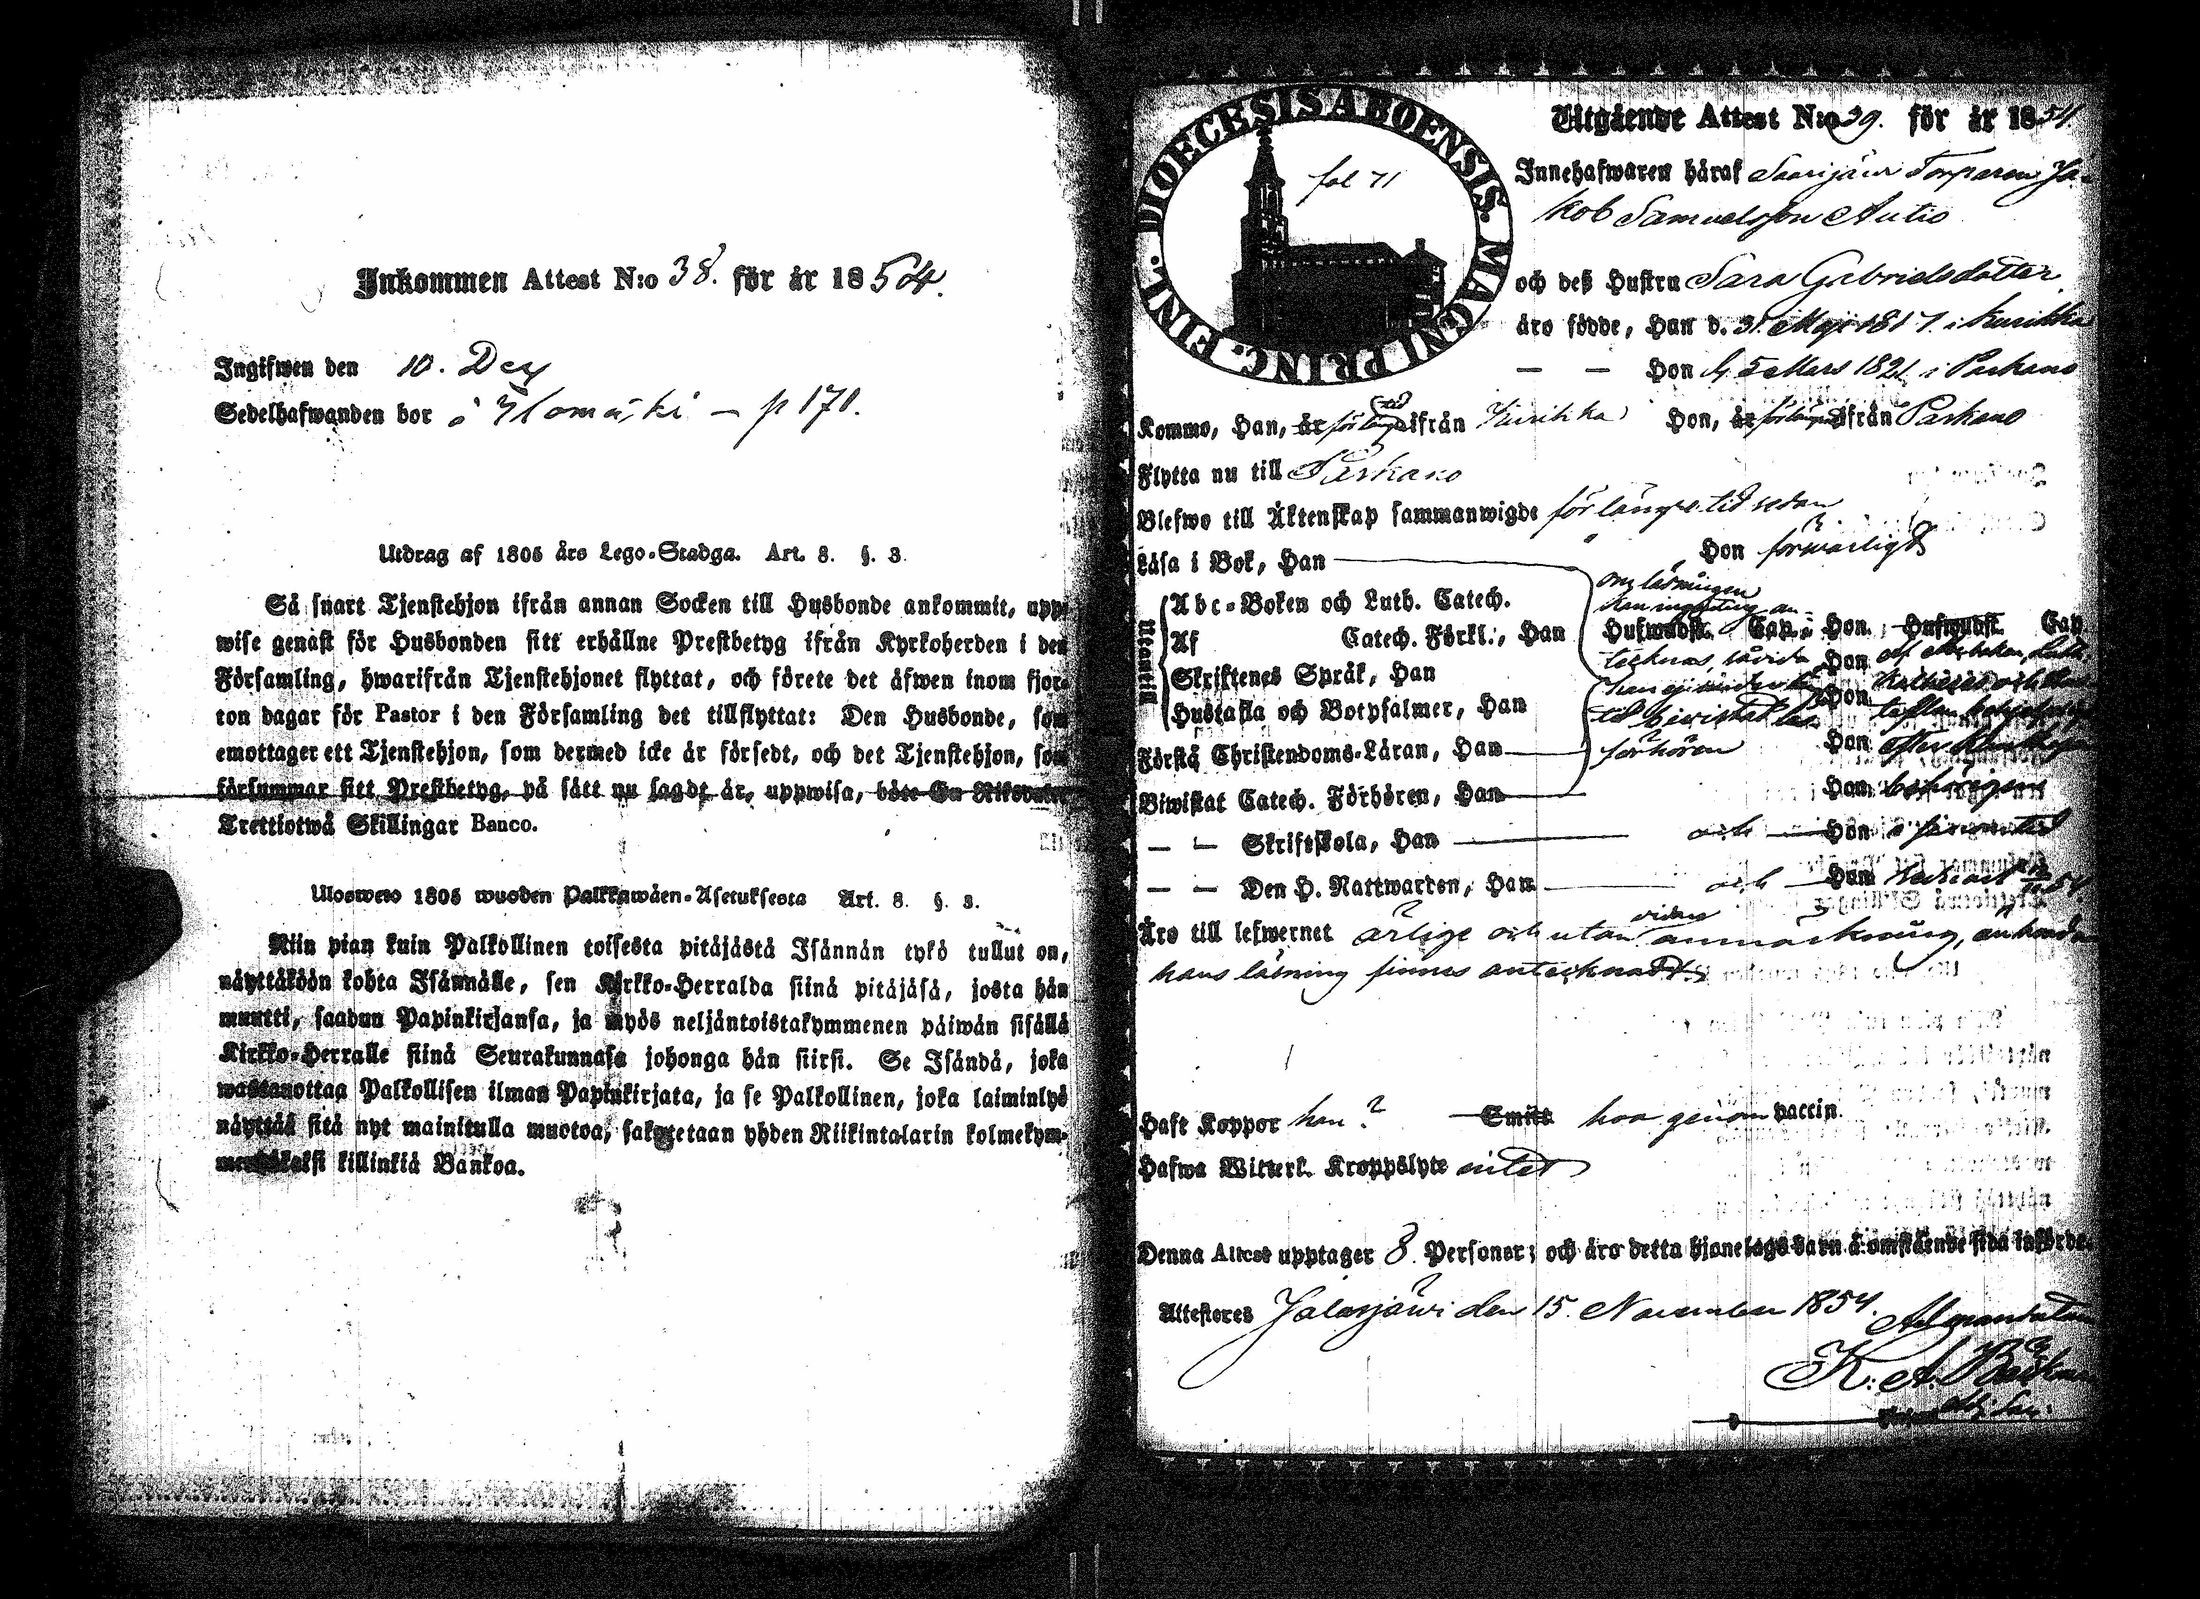 Inkommen Attest N:o 38. för år 1854.
Ingifwen den 10. Dec
Sedelhafwanden bor å Ylomäki – p 170.
Utdrag af 1805 års Lego-Stadga. Art. 8. §. 3.
Så snart Tjenstehjon ifrån annan Socken till Husbonde ankommit, upp-
wise genast för Husbonden sitt erhållne Prestbetyg ifrån Kyrkoherden i den
Församling, hwarifrån Tjenstehjonet flyttat, och förete det äfwen inom fjor-
ton dagar för Pastor i den Församling det tillflyttat: Den Husbonde, som
emottager ett Tjenstehjon, som dermed icke är försedt, och det Tjenstehjon, som
försummar sitt Prestbetyg, på sätt nu sagdt är, uppwisa, böte En Riksdaler
Trettiotwå Skillingar Banco.
Ulosweto 1805 wuoden Palkkawäen-Asetuksesta Art. 8. §. 3.
Niin pian kuin Palkollinen toisesta pitäjästä Isännän tykö tullut on,
näyttäköön kohta Isännälle, sen Kirkko-Herralda siinä pitäjäsä, josta hän
muutti, saadun Papinkirjansa, ja myös neljäntoistakymmenen päiwän sisällä
Kirkko-Herralle siinä Seurakunnasa johonga hän siirsi. Se Isändä, joka
wastanottaa Palkollisen ilman Papinkirjata, ja se Palkollinen, joka laiminlyö
näyttää sitä nyt mainitulla muotoa, sakotetaan yhden Riikintalarin kolmekym-
mendäkaksi killinkiä Bankoa.
DIOECESIS ABOENSIS. MAGNI PRINC. FINL.
fol 71
Utgående Attest N:o 39. för år 1854.
Innehafwaren häraf Saarijärvi Torparen Ja-
kob Samuelsson Autio
och deß Hustru Sara Gabrielsdotter
äro födde, Han d. 31 Maji 1817 i Kurikka
— — Hon d. 5 Mars 1821 i Parkano
Kommo, Han, är för länge tid ifrån Kurikka Hon, är för länge ifrån Parkano
Flytta nu till Parkano
Blefwo till Äktenskap sammanwigde för längre tid sedan
Läsa i Bok, Han Hon förswarligt
om läsningen
Abc-Boken och Luth. Catech.
Af Catech. Förkl., Han Hufwudst. Cap.; Hon Hufwudst. Cap.
tecknas, såvida Hon
Skriftens Språk, Han Hon
Hustafla och Botpsalmer, Han Hon
Utantill
Förstå Christendoms-Läran, Han förhören Hon efter
Biwistat Catech. Förhören, Han Hon behörigen
— — Skriftskola, Han och Hon i sin tid
— — Den H. Nattwarden, Han och Hon
Äro till lefwernet ärlige och utan vidare anmärkning, än hvad om
hans läsning finnes antecknadt.
Haft Koppor han? Smitt hon genom vaccin.
Hafwa Witterl. Kroppslyte intet
Denna Attest upptager 8 Personer; och äro detta hjonelags barn å omstående sida införde.
Attesteres Jalasjärvi den 15. November 1854.
Ad mandatum
K. A.